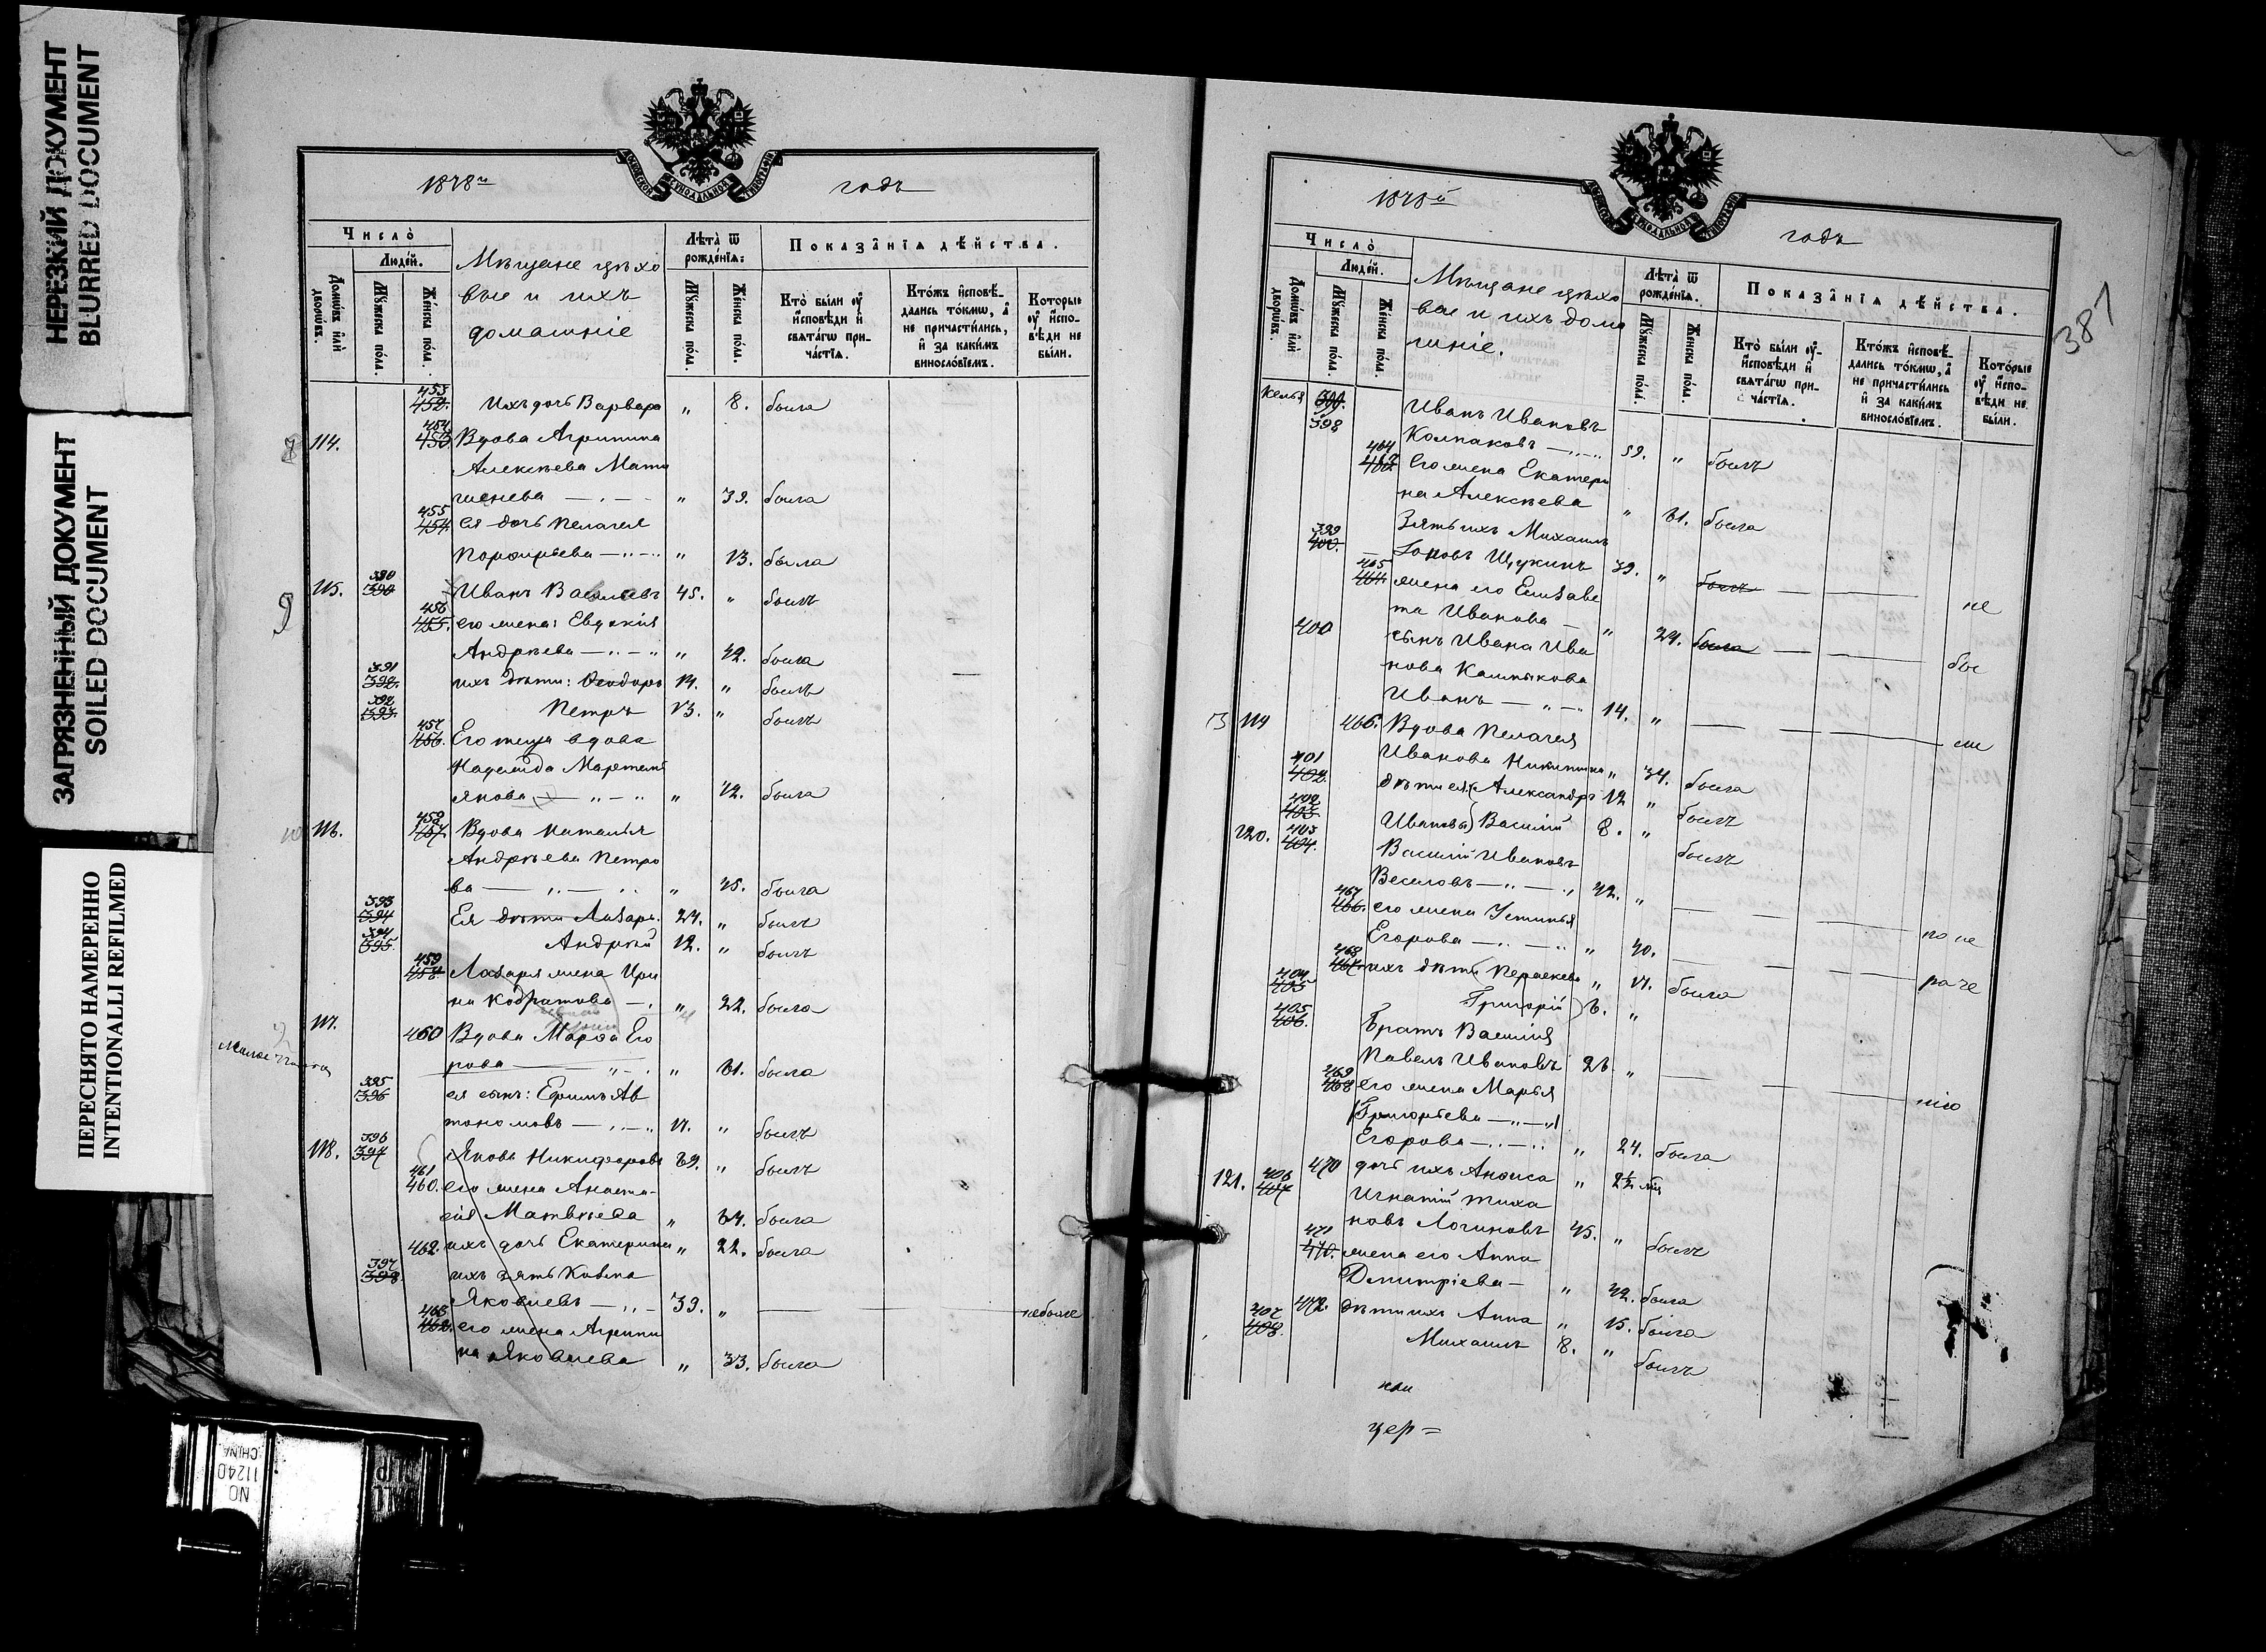 НЕРЕЗКИЙ ДОКУМЕНТ
BLURRED DOCUMENT
ЗАГРЯЗНЕННЫЙ ДОКУМЕНТ
SOILED DOCUMENT
ПЕРЕСНЯТО НАМЕРЕННО
INTENTIONALLI REFILMED
NO
11240
CHINA
1878й годъ
Число̀
Люде́й.
Домѡ́въ и҆лѝ дворѡ́въ.
Мꙋ́жеска по́ла.
Же́нска по́ла.
Мѣщане цѣхо
вые и ихъ
домашніе
Лѣта̀ ѿ рожде́нїѧ:
Мꙋ́жеска по́ла.
Же́нска по́ла.
Показа̑нїѧ дѣ́йства.
Кто̀ бы́ли ᲂу҆ и҆сповѣ́ди и҆ свѧта́гѡ при-ча́стїѧ.
Кто́жъ и҆сповѣ́-дались то́кмѡ, а҆ не причасти́лись, и҆ за каки́мъ винослⷪ҇вїемъ.
Кото́рые ᲂу҆ и҆спо-вѣ́ди не бы́ли.
453 452. Ихъ дочь Варвара " 8. была
114. 454 453. Вдова Агрипина
Алексѣева Мати
шенева " 39. была
455 454. ея дочь Пелагея
Порфирьева " 13. была
115. 390 Иванъ Васильевъ 45. " былъ
456 455. его жена: Евдокія
Андреѣва " 42. была
391 392. ихъ дѣти: Ѳеодоръ 14. " былъ
392 393. Петръ 13. " былъ
457 456. Его теща вдова
Надежда Мартемь
янова " 72. была
116. 458 457. Вдова Наталья
Андрѣева Петро
ва " 45. была
393 394 Ея дѣти Лазарь. 24. " былъ
394 395. Андрей 12. " былъ
459 458. Лазаря жена Ири
на Кодратова " 22. была
117. 460 Вдова Марѳа Его
рова " 61. была
395 396 ея сынъ: Ефимъ Ав
тономовъ 17. " былъ
118. 396 397 Яковъ Никифоровъ 69. " былъ
461 460. его жена Анаста-
сія Матвѣева " 64. была
462. ихъ дочь Екатерина " 22. была
397 398 ихъ зять Козма
Яковлевъ 39. " не были
463 462. его жена Агрипи
на Яковлева " 33. была
1878й годъ
381
Число̀
Люде́й.
Домѡ́въ и҆лѝ дворѡ́въ.
Мꙋ́жеска по́ла.
Же́нска по́ла.
Мѣщане цѣхо
вые и ихъ дома
шніе.
Лѣта̀ ѿ рожде́нїѧ.
Мꙋ́жеска по́ла.
Же́нска по́ла.
Показа̑нїѧ дѣ́йства.
Кто̀ бы́ли ᲂу҆ и҆сповѣ́ди и҆ свѧта́гѡ при-ча́стїѧ.
Кто́жъ и҆сповѣ́-дались то́кмѡ, а҆ не причасти́лись и҆ за каки́мъ винослⷪ҇вїемъ.
Кото́рые ᲂу҆ и҆спо-вѣ́ди не бы́ли.
келья 399. 398 Иванъ Ивановъ
Колпаковъ 59. " былъ
464 Его жена Екатери
на Алексѣева " 61. была
399 400. Зять ихъ Михаилъ
Щукинъ 39. " былъ не
465 464. жена его Елизаве
та Иванова " 29. была бы
400 сынъ Ивана Ива
нова
Иванъ 14. " ли
466. Вдова Пелагея
Иванова Никитина " 34. была
401 402. дѣти ея Александръ 12 " былъ
402 403. Ивановы Василій 8. " былъ
120. 403 404. Василій Ивановъ
Веселовъ 42. " по не
467 466. его жена Устинья
Егорова " 40. раче
468 467. ихъ дѣти Параскева " 17. была
404 405 Григорій 6. "
405 406. Братъ Василія
Павелъ Ивановъ 26. " нію
469 468 его жена Марья
Григорьева
Егорова " 24. была
470 дочь ихъ Анѳиса " 2½
121. 406 407 Игнатій Тиха
новъ Логиновъ 45. " былъ
471 470. жена его Анна
Димитріева " 42. была
472. дѣти ихъ Анна " 15. была
407 408. Михаилъ 8. " былъ
цер=